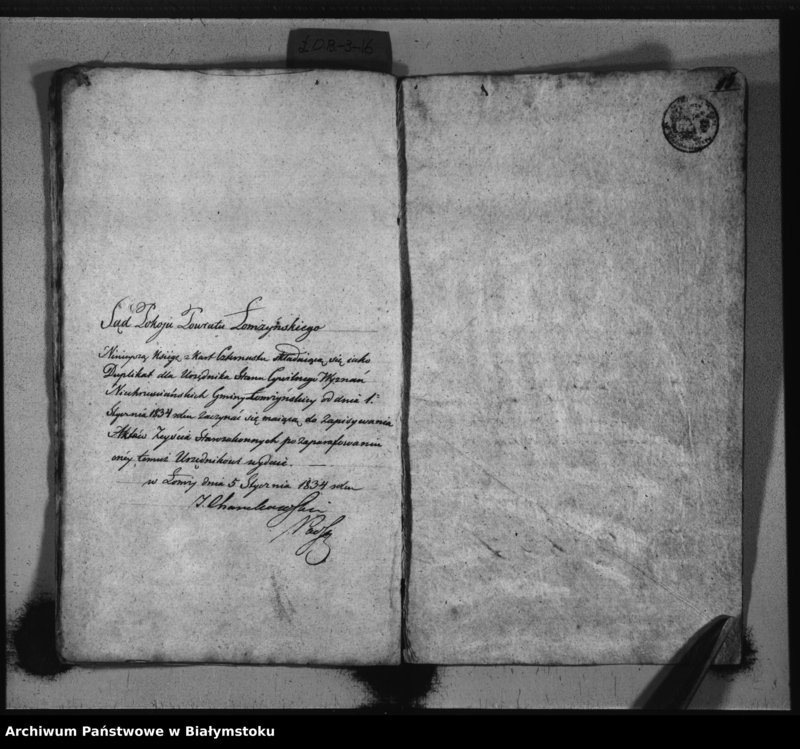 ŁDB-3-16
Sąd Pokoju Powiatu Łomżyńskiego
Ninieyszą Księgę z kart Czternastu składaiącą się iako
Duplikat dla Urzędnika Stanu Cywilnego Wyznań
Niechrześciańskich Gminy Łomżyńskiey od dnia 1.
Stycznia 1834 roku zaczynać się maiącą do zapisywania
Aktów Zeyścia Starozakonnych po zaparafowaniu
oney temuż Urzędnikowi wydaie.
w Łomży dnia 5 Stycznia 1834 roku
Archiwum Państwowe w Białymstoku